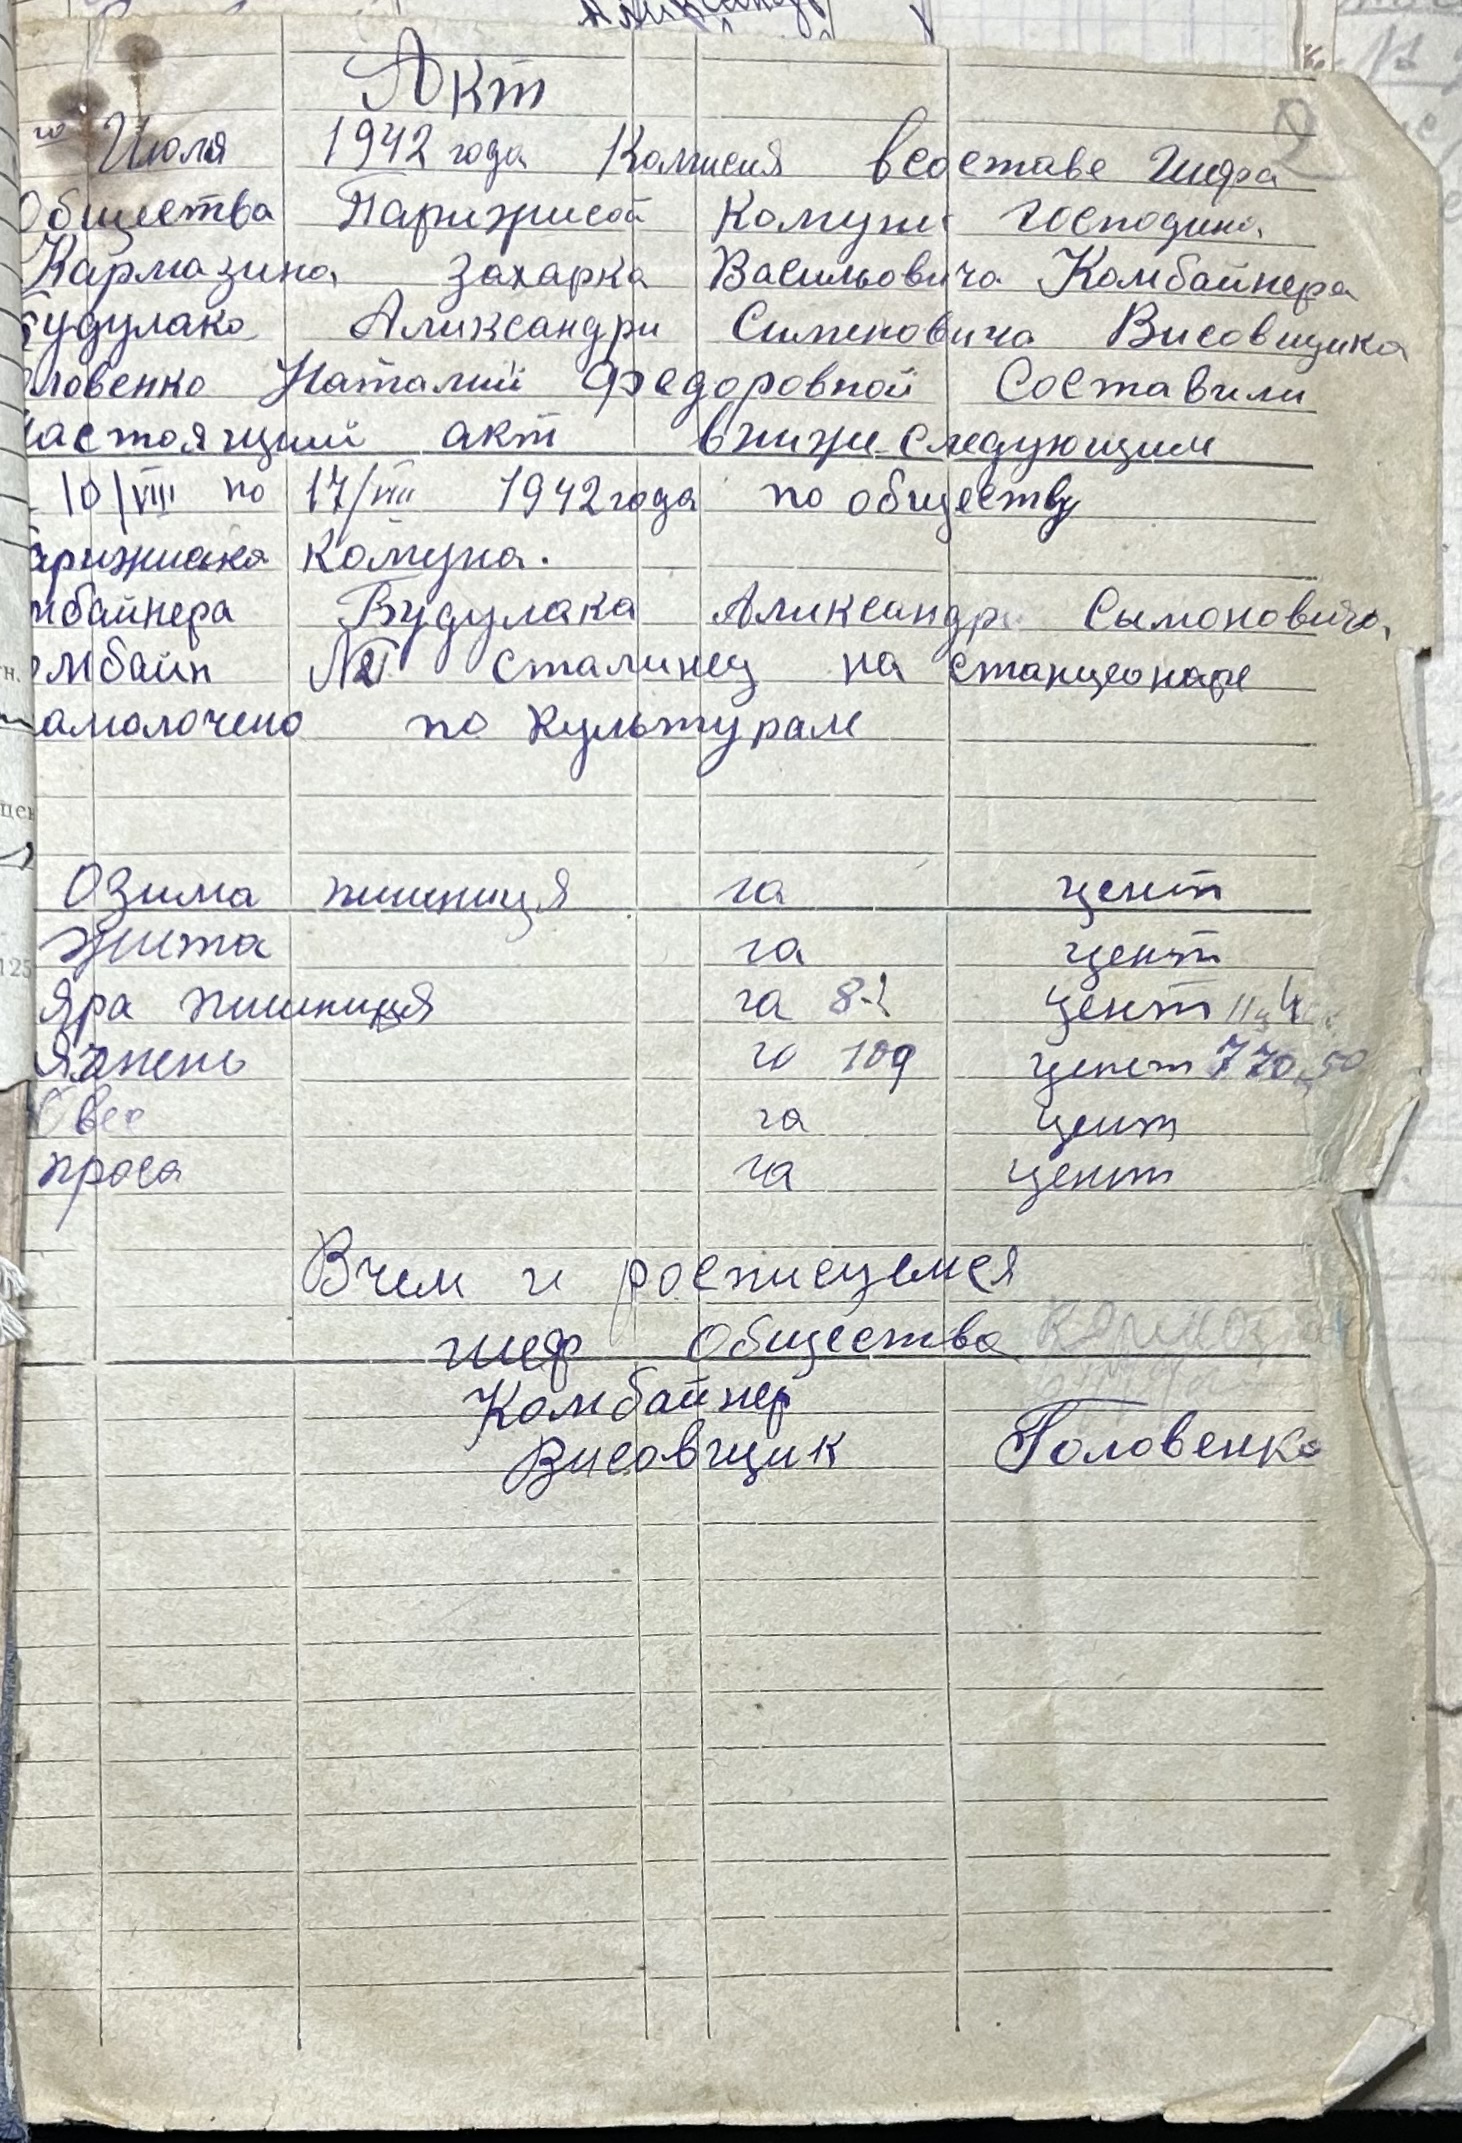 Акт
го Июля 1942 года Комисия всоставе Шефа
Общества Парижской Комуни господина
Кармазина Захарка Васильовича Комбайнера
Будулака Александри Сименовича Висовщика
ловенко Наталий Федоровной Составили
Настоящий акт внижи следующим
10/VIII по 17/VIII 1942 года по обществу
арижиська Комуна.
мбайнера Будулака Александр Сымоновича,
омбайн № Сталинец на станционаре
амолочено по Культурам
Озима пшиниця га цент
жита га цент
Яра пшиниця га цент
Ячмень га 109 цент 770,50
Овес га цент
проса га цент
Вчем и росписуемся
шеф Общества
Комбайнер
Висовщик Головенко